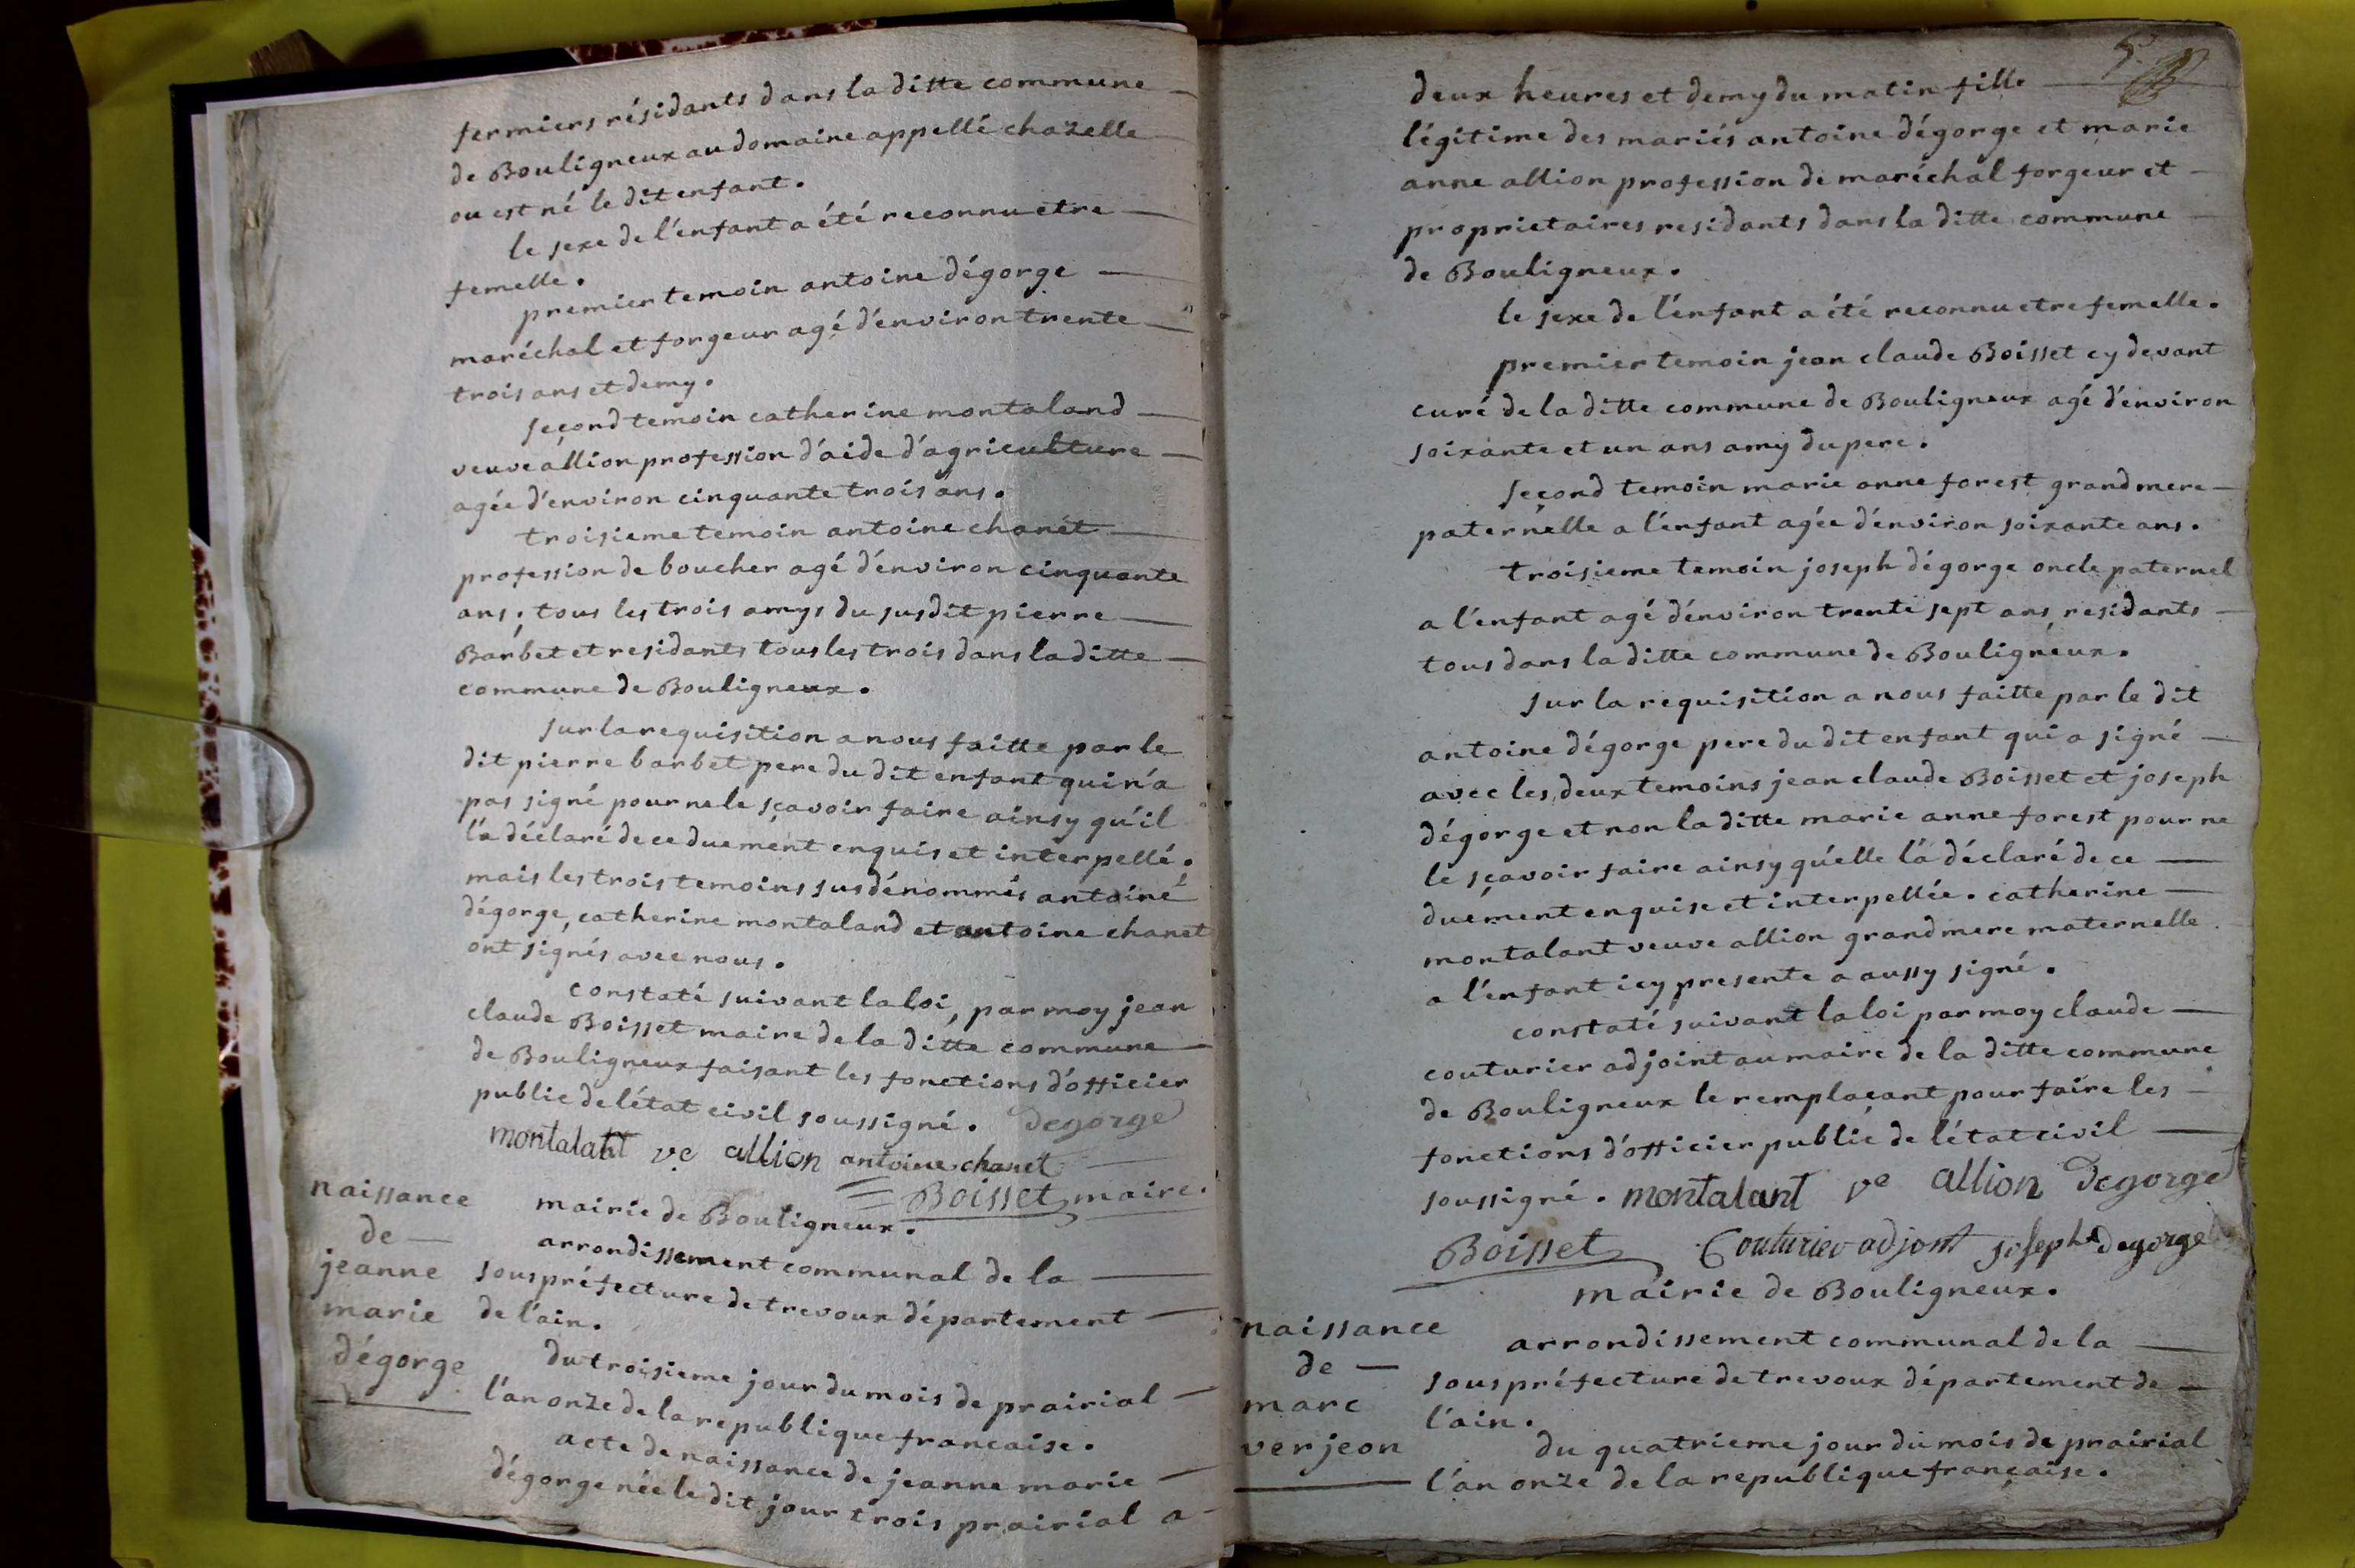 fermiers résidants dans la ditte commune
de Bouligneux au domaine appellé chazelle
ou est né le dit enfant.
le sexe de l'enfant a été reconnu etre
femelle.
premier temoin antoine dégorge
maréchal et forgeur agé d'environ trente
trois ans et demy.
second temoin catherine montaland
veuve allion profession d'aide d'agriculture
agée d'environ cinquante trois ans.
troisieme temoin antoine chanét
profession de boucher agé d'environ cinquante
ans; tous les trois amys du susdit pierre
Barbet et residants tous les trois dans la ditte
commune de Bouligneux.
sur la requisition a nous faitte par le
dit pierre barbet pere du dit enfant qui n'a
pas signé pour ne le sçavoir faire ainsy qu'il
l'a déclaré de ce duement enquis et interpellé.
mais les trois temoins susdénommés antoine
dégorge, catherine montaland et antoine chanet
ont signés avec nous.
constaté suivant la loi, par moy jean
claude Boisset maire de la ditte commune
de Bouligneux faisant les fonctions d'officier
public de l'état civil soussigné. Degorge
montalant ve allion antoine chanet
Boisset maire.
naissance
de
jeanne
marie
dégorge
mairie de Bouligneux.
arrondissement communal de la
souspréfecture de trevoux département
de l'ain.
du troisieme jour du mois de prairial
l'an onze de la republique francaise.
acte de naissance de jeanne marie
dégorge née le dit jour trois prairial a
5.
deux heures et demy du matin fille
légitime des mariés antoine dégorge et marie
anne allion profession de maréchal forgeur et
proprietaires residants dans la ditte commune
de Bouligneux.
le sexe de l'enfant a été reconnu etre femelle.
premier temoin jean claude Boisset cy devant
curé de la ditte commune de Bouligneux agé d'environ
soixante et un ans amy du pere.
second temoin marie anne forest grand mere
paternelle a l'enfant agée d'environ soixante ans.
troisieme temoin joseph dégorge oncle paternel
a l'enfant agé d'environ trente sept ans, residants
tous dans la ditte commune de Bouligneux.
sur la requisition a nous faitte par le dit
antoine dégorge pere du dit enfant qui a signé
avec les deux temoins jean claude Boisset et joseph
dégorge et non la ditte marie anne forest pour ne
le sçavoir faire ainsy qu'elle l'a déclaré de ce
duement enquise et interpellée. catherine
montalant veuve allion grand mere maternelle
a l'enfant icy presente a aussy signé.
constaté suivant la loi par moy claude
couturier adjoint au maire de la ditte commune
de Bouligneux le remplaçant pour faire les
fonctions d'officier public de l'état civil
soussigné. montalant ve allion Degorge
Boisset Couturier adjoint joseph degorge
mairie de Bouligneux.
naissance
de
marc
verjeon
arrondissement communal de la
souspréfecture de trevoux département de
l'ain.
du quatrieme jour du mois de prairial
l'an onze de la republique française.